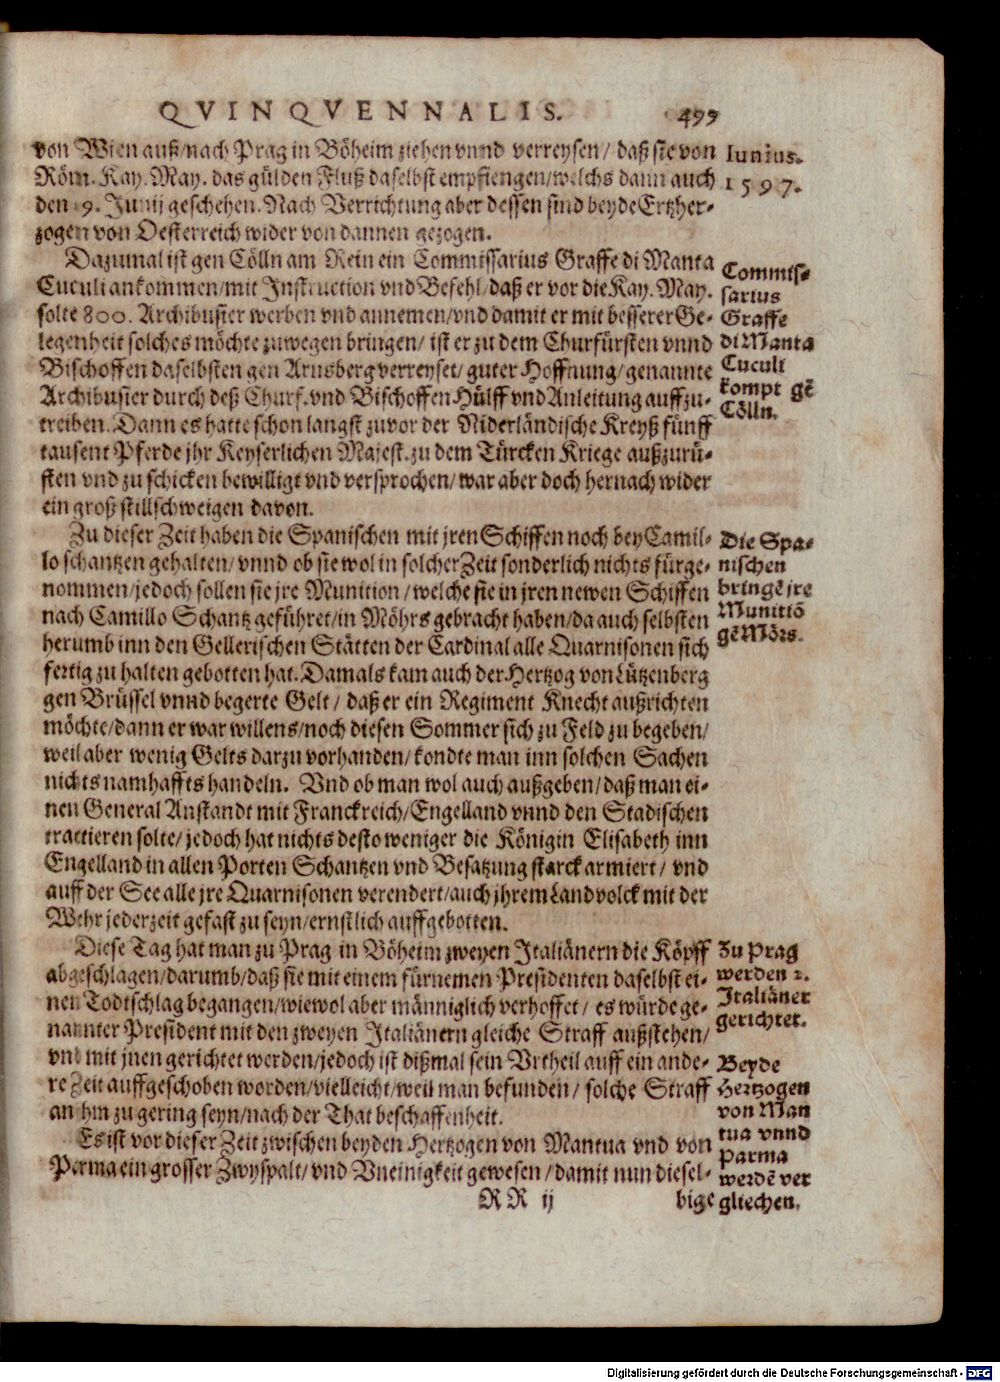 QVINQVENNALIS. 499
von Wien auß/nach Prag in Böheim ziehen vnnd verreysen/ daß sie von
Röm. Kay. May. das gülden Fluß daselbst empfiengen/welchs dann auch
den 9. Junij geschehen. Nach Verrichtung aber dessen sind beyde Ertzher-
zogen von Oesterreich wider von dannen gezogen.
Iunius.
1597.
Dazumal ist gen Cölln am Rein ein Commissarius Graffe di Manta
Cuculi ankommen/mit Instruction vnd Befehl/daß er vor die Kay. May.
solte 800. Archibusier werben vnd annemen/vnd damit er mit besserer Ge-
legenheit solches möchte zuwegen bringen/ ist er zu dem Churfürsten vnnd
Bischoffen daselbsten gen Arnsberg verreyset/guter Hoffnung/genannte
Archibusier durch deß Churf. vnd Bischoffen Hülff vnd Anleitung auffzu-
treiben. Dann es hatte schon langst zuvor der Niderländische Kreyß fünff
tausent Pferde jhr Keyserlichen Majest. zu dem Türcken Kriege außzurü-
sten vnd zu schicken bewilligt vnd versprochen/war aber doch hernach wider
ein groß stillschweigen davon.
Commis-
sarius
Graffe
di Manta
Cuculi
kompt gē
Cölln.
Zu dieser Zeit haben die Spanischen mit jren Schiffen noch bey Camil-
lo schantzen gehalten/ vnnd ob sie wol in solcher Zeit sonderlich nichts fürge-
nommen/jedoch sollen sie jre Munition/welche sie in jren newen Schiffen
nach Camillo Schantz geführet/in Möhrs gebracht haben/da auch selbsten
herumb inn den Gellerischen Stätten der Cardinal alle Quarnisonen sich
fertig zu halten gebotten hat. Damals kam auch der Hertzog von Lützenberg
gen Brüssel vnnd begerte Gelt/ daß er ein Regiment Knecht außrichten
möchte/dann er war willens/noch diesen Sommer sich zu Feld zu begeben/
weil aber wenig Gelts darzu vorhanden/kondte man inn solchen Sachen
nichts namhaffts handeln. Vnd ob man wol auch außgeben/daß man ei-
nen General Anstandt mit Franckreich/Engelland vnnd den Stadischen
tractieren solte/jedoch hat nichts desto weniger die Königin Elisabeth inn
Engelland in allen Porten Schantzen vnd Besatzung starck armiert/ vnd
auff der See alle jre Quarnisonen verendert/auch jhrem Landvolck mit der
Wehr jederzeit gefast zu seyn/ernstlich auffgebotten.
Die Spa-
nischen
bringē jre
Munitiō
gē Mörs.
Diese Tag hat man zu Prag in Böheim zweyen Italiänern die Köpff
abgeschlagen/darumb/daß sie mit einem fürnemen Presidenten daselbst ei-
nen Todtschlag begangen/wiewol aber männiglich verhoffet/ es würde ge-
nannter President mit den zweyen Italiänern gleiche Straff außstehen/
vnd mit jnen gerichtet werden/jedoch ist dißmal sein Vrtheil auff ein ande-
re Zeit auffgeschoben worden/vielleicht/weil man befunden/ solche Straff
an jhm zu gering seyn/nach der That beschaffenheit.
Zu Prag
werden 2.
Italiäner
gerichtet.
Es ist vor dieser Zeit zwischen beyden Hertzogen von Mantua vnd von
Parma ein grosser Zwyspalt/vnd Vneinigkeit gewesen/damit nun diesel-
Beyde
Hertzogen
von Man
tua vnnd
Parma
werdē ver
gliechen.
RR ij bige
Digitalisierung gefördert durch die Deutsche Forschungsgemeinschaft - DFG